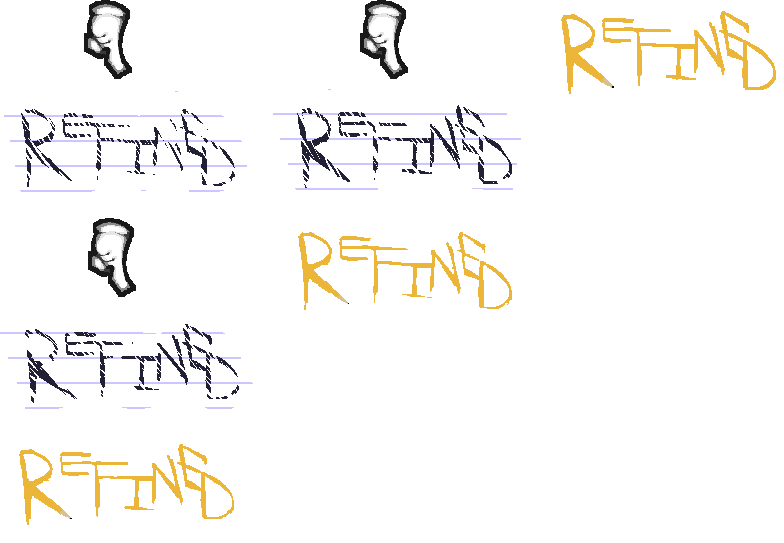 REFINED
REFINED
REFINED
REFINED
REFINED
REFINED